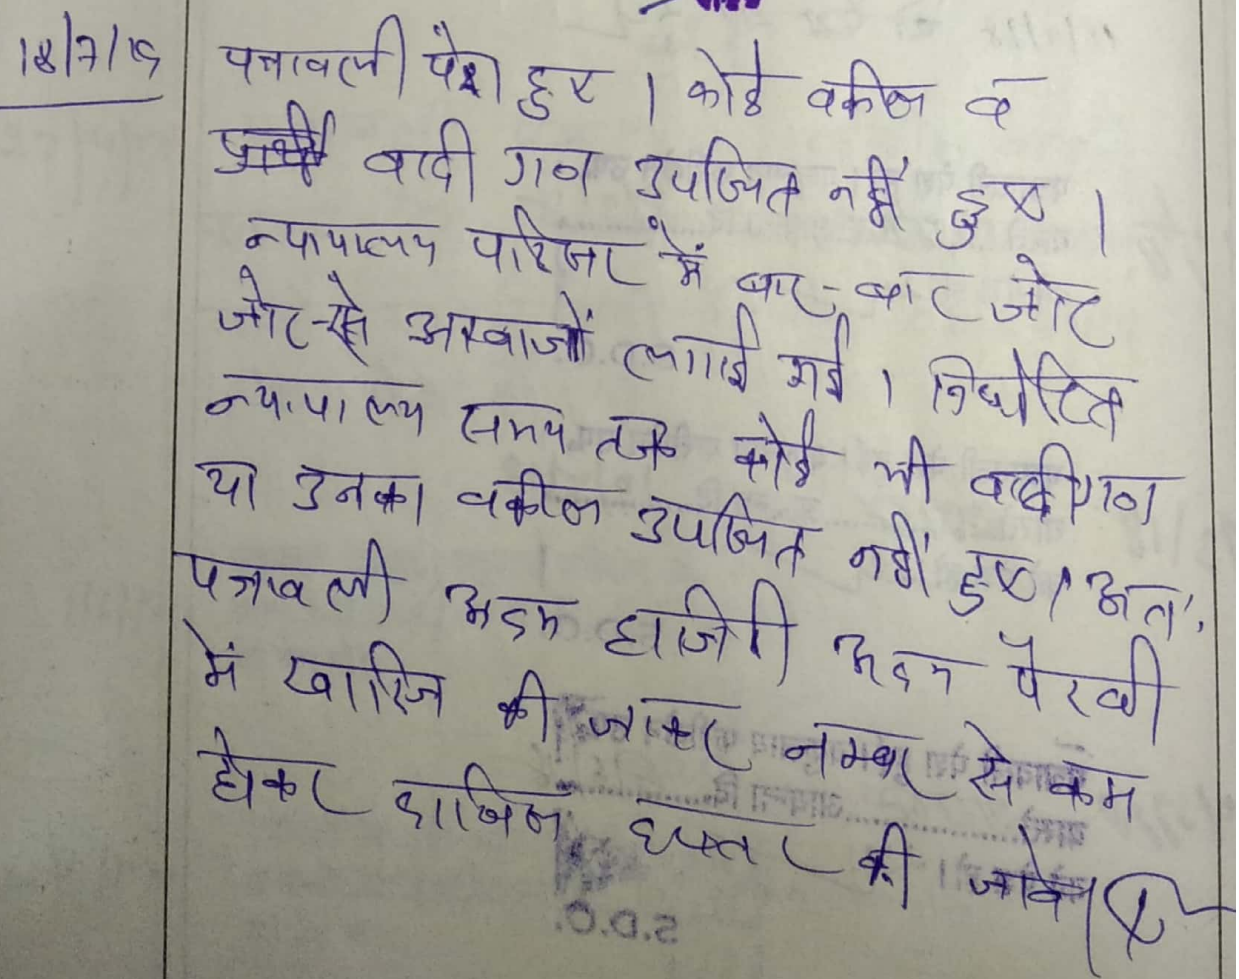 18/7/19
पत्रावली पेश हुई । कोई वकील व
वादी गण उपस्थित नहीं हुए ।
न्यायालय परिसर में बार-बार जोर
जोर से आवाजें लगाई गई । निर्धारित
न्यायालय समय तक कोई भी वादीगण
या उनका वकील उपस्थित नहीं हुए। अतः
पत्रावली अदम हाजिरी अदम पैरवी
में खारिज की जाकर नम्बर से कम
होकर दाखिल दफ्तर की जावे।
S.D.O.